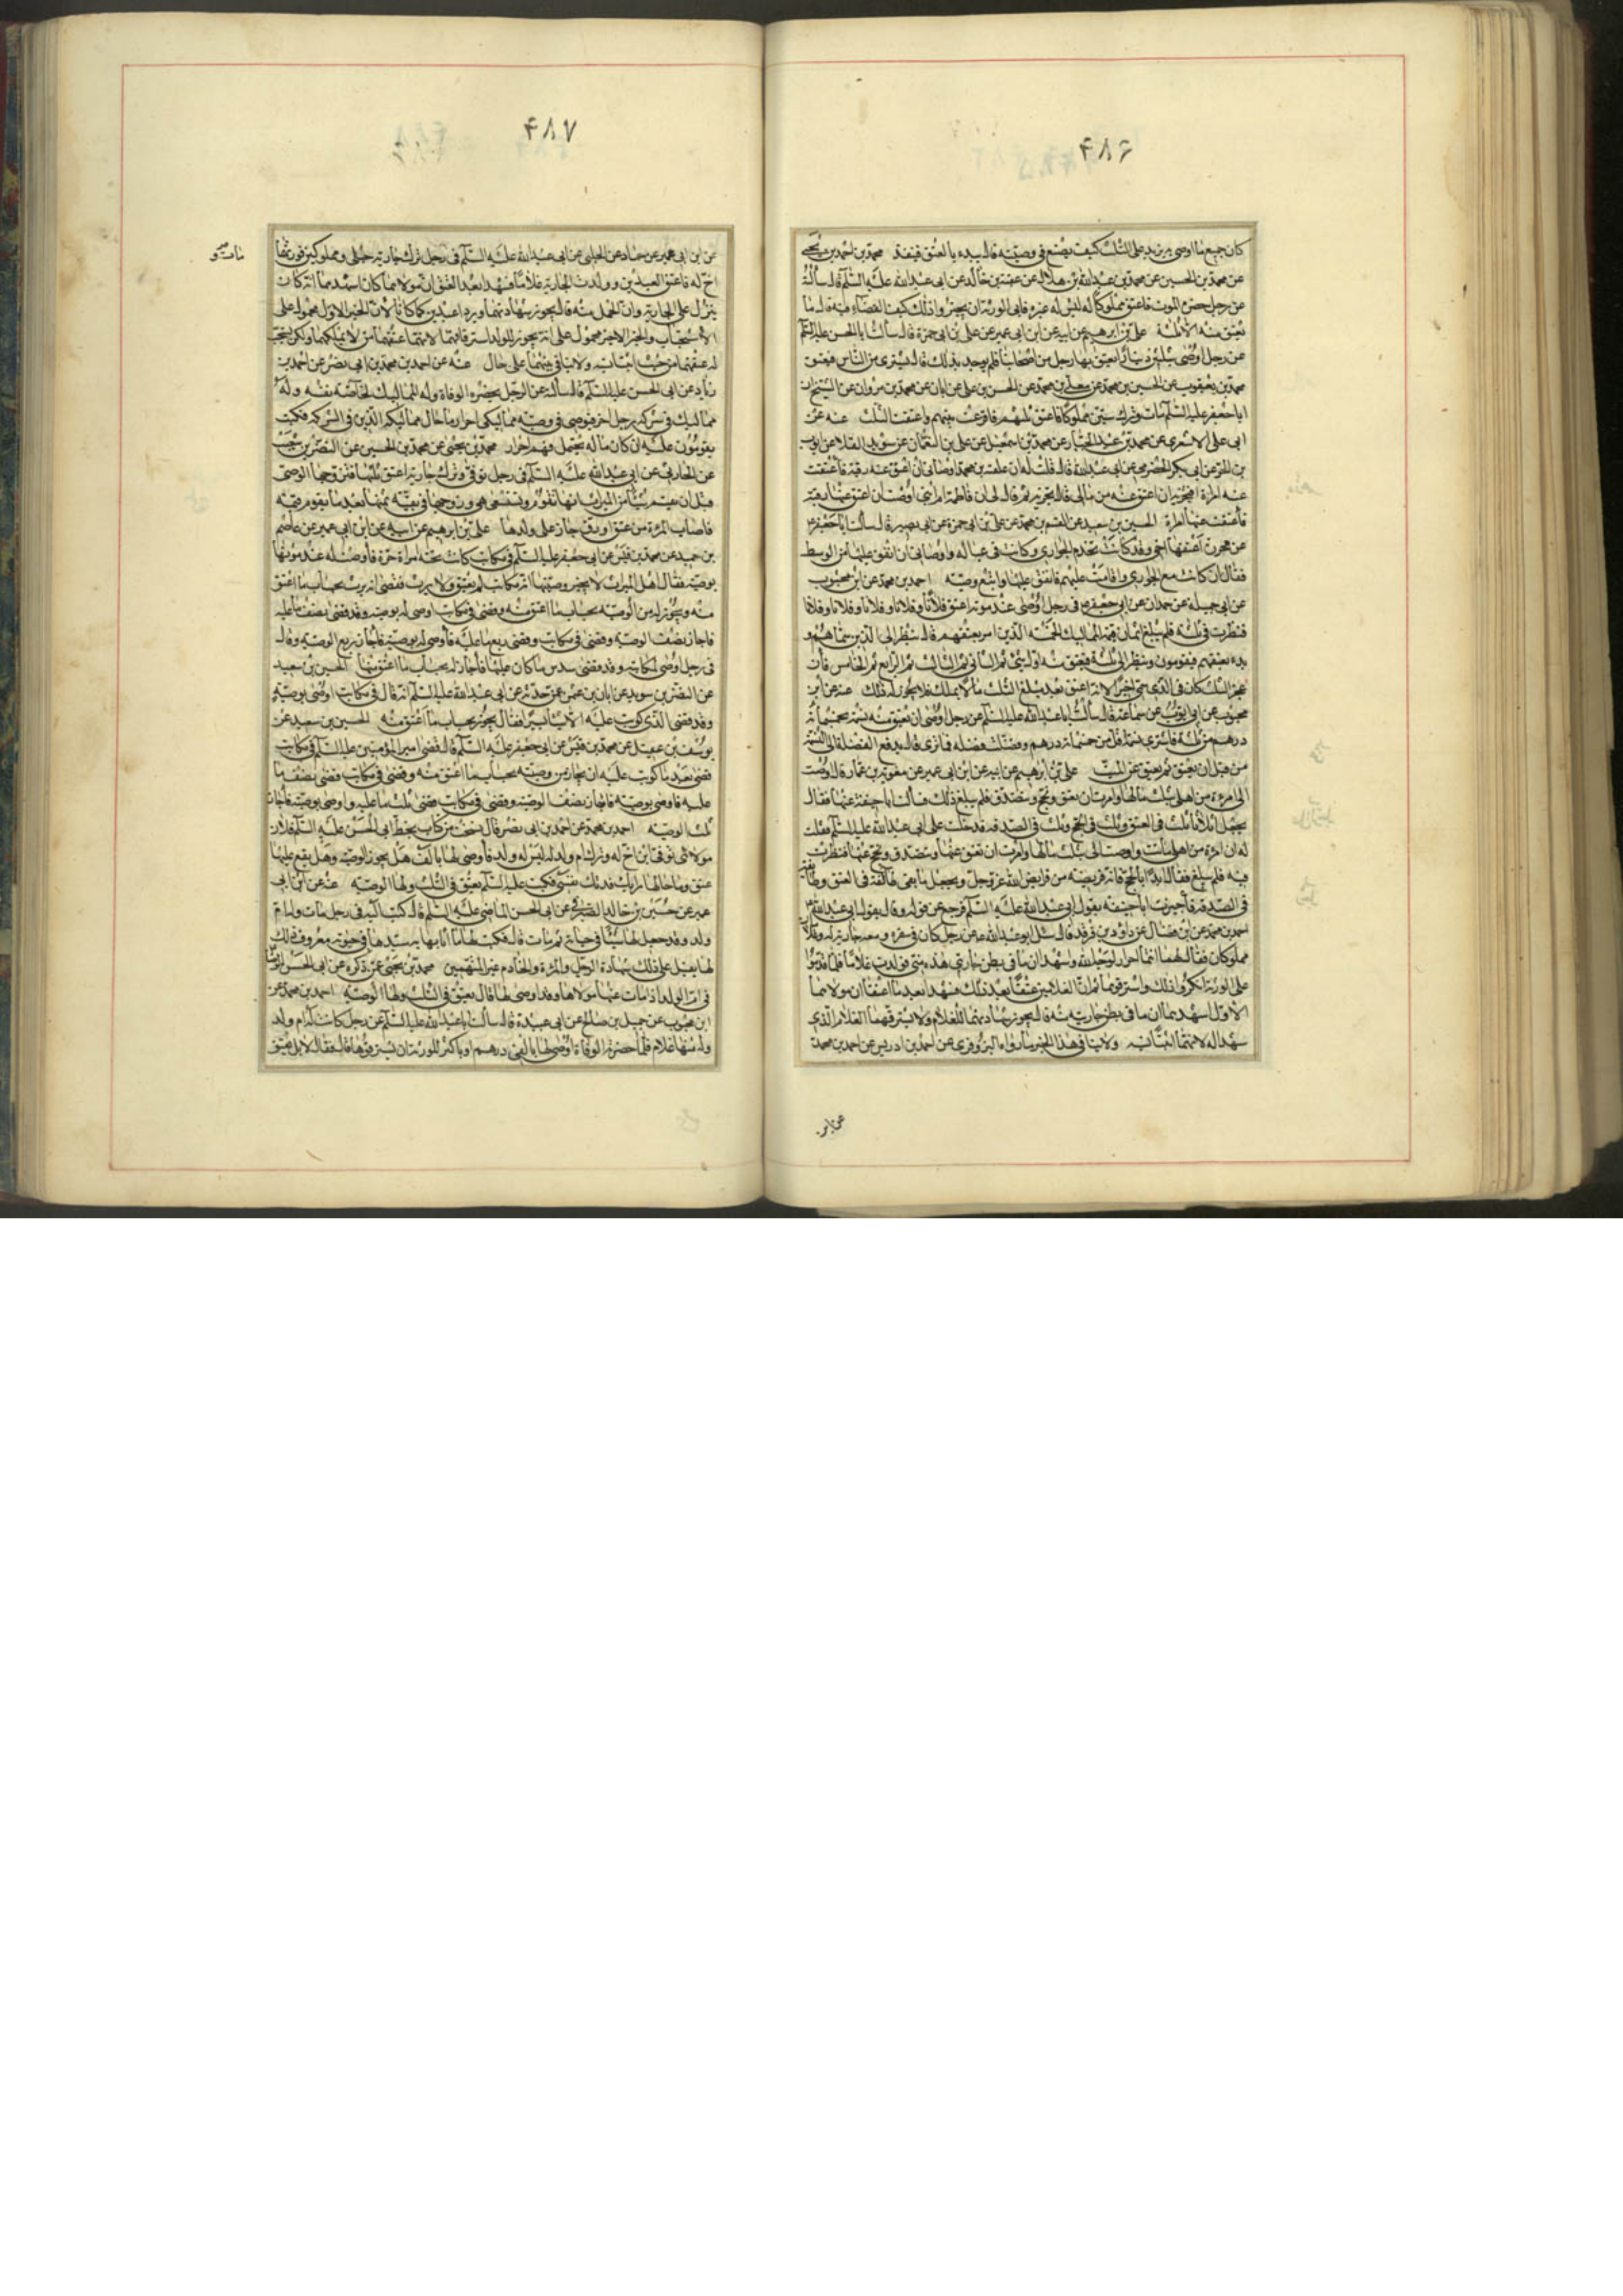 ۴۸۶
كان جميع ما اوصى به يزيد على الثلث كيف يصنع في وصيته قال يبدء بالعتق فينفذ محمد بن احمد بن يحيى
عن محمد بن الحسين عن محمد بن عبد الله بن هلال عن عقبة بن خالد عن ابي عبد الله عليه السلم قال سألته
عن رجل حضره الموت فاعتق مملوكا له ليس له غيره فابى الورثة ان يجيزوا ذلك كيف القضاء فيه قال ما
يعتق منه الا ثلثه علي بن ابرهيم عن ابيه عن ابن ابي عمير عن علي بن ابي حمزة قال سألت ابا الحسن عليه السلم
عن رجل اوصى بثلثين دينارا يعتق بها رجل من اصحابنا فلم يوجد بذلك قال يشترى من الناس فيعتق
محمد بن يعقوب عن الحسين بن محمد عن معلى بن محمد عن الحسن بن علي عن ابان عن محمد بن مروان عن الشيخ ان
ابا جعفر عليه السلم مات وترك ستين مملوكا فاعتق ثلثهم فاقرعت بينهم واعتقت الثلث عنه عن
ابي علي الاشعري عن محمد بن عبد الجبار عن محمد بن اسمعيل عن علي بن النعمان عن سويد القلاء عن ايوب
بن الحر عن ابي بكر الحضرمي عن ابي عبد الله قال قلت له ان علقمة بن محمد اوصاني ان اعتق عنه رقبة فاعتقت
عنه امراة افتجزيه ان اعتق عنه من مالي قال يجزيه ثم قال لي ان فاطمة ام ابني اوصت ان اعتق عنها رقبة
فاعتقت عنها امراة الحسين بن سعيد عن القسم بن محمد عن علي بن ابي حمزة عن ابي بصير قال سألت ابا جعفر
عن محررة اعتقها اخي وقد كانت تخدم الجواري وكانت في عياله واوصاني ان انفق عليها من الوسط
فقال ان كانت مع الجواري واقامت عليهم فانفق عليها واتبع وصيته احمد بن محمد عن ابن محبوب
عن ابي جميلة عن حمران عن ابي جعفر في رجل اوصى عند موته اعتق فلانا وفلانا وفلانا وفلانا وفلانا
فنظرت في ثلثه فلم يبلغ اثمان قيمة المماليك الخمسة الذين امر بعتقهم قال ينظر الى الذين سماهم و
بدء بعتقهم فيقومون وينظر الى ثلثه فيعتق منه اول شئ ثم الثاني ثم الثالث ثم الرابع ثم الخامس فان
عجز الثلث كان في الذي سمى اخيرا لانه اعتق بعد مبلغ الثلث ما لا يملك فلا يجوز له ذلك عنه عن ابن
محبوب عن ابي ايوب عن سماعة قال سألت ابا عبد الله عليه السلم عن رجل اوصى ان يعتق عنه نسمة بخمسمائة
درهم من ثلثه فاشتري نسمة باقل من خمسمائة درهم وفضلت فضلة فما ترى قال يدفع الفضلة الى النسمة
من قبل ان يعتق ثم يعتق عن الميت علي بن ابرهيم عن ابيه عن ابن ابي عمير عن معوية بن عمار قال اوصت
الي امرءة من اهلي بثلث مالها وامرت ان يعتق ويحج ويتصدق فلم يبلغ ذلك فسألت ابا حنيفة عنها فقال
يجعل اثلاثا ثلث في العتق وثلث في الحج وثلث في الصدقة فدخلت على ابي عبد الله عليه السلم فقلت
له ان امرءة من اهلي ماتت واوصت الي بثلث مالها وامرت ان يعتق عنها ويتصدق ويحج عنها فنظرت
فيه فلم يبلغ فقال ابدأ بالحج فانه فريضة من فرايض الله عز وجل ويجعل ما بقي طائفة في العتق وطائفة
في الصدقة فاخبرت ابا حنيفة بقول ابي عبد الله عليه السلم فرجع عن قوله وقال بقول ابي عبد الله
احمد بن محمد عن ابن فضال عن داود بن فرقد قال سئل ابو عبد الله عن رجل كان في سفره ومعه جارية له وغلامان
مملوكان فقال لهما انتما احرار لوجه الله واشهد ان ما في بطن جاريتي هذه مني فولدت غلاما فلما قدموا
على الورثة انكروا ذلك واسترقوهم ثم ان الغلامين عتقا بعد ذلك فشهدا بعد ما اعتقا ان مولاهما
الاول اشهدهما ان ما في بطن جاريته منه قال يجوز شهادتهما للغلام ولا يسترقهما الغلام الذي
شهدا له لانهما اثبتا نسبه ولا ينافي هذا الخبر ما رواه البزوفري عن احمد بن ادريس عن احمد بن محمد
عن ابن
۴۸۷
عن ابن ابي عمير عن حماد عن الحلبي عن ابي عبد الله عليه السلم في رجل ترك جارية حبلى ومملوكين فورثهما
اخ له فاعتق العبدين وولدت الجارية غلاما فشهدا بعد العتق ان مولاهما كان اشهدهما انه كان
ينزل على الجارية وان الحمل منه قال يجوز شهادتهما ويردا عبدين كما كانا لان الخبر الاول محمول على
الاستحباب والخبر الاخير محمول على انه يجوز للولد استرقاقهما لانهما عتقهما من لا يملكهما ولكن يستحب
له عتقهما من حيث اثبتا نسبه ولا تنافي بينهما على حال عنه عن احمد بن محمد بن ابي نصر عن احمد بن
زياد عن ابي الحسن عليه السلم قال سألته عن الرجل يحضره الوفاة وله المماليك لخاصة نفسه وله
مماليك في شركة رجل اخر فيوصي في وصيته مماليكي احرار ما حال مماليكه الذين في الشركة فكتب
يقومون عليه ان كان ماله يحتمل فهم احرار محمد بن يحيى عن محمد بن الحسين عن النضر بن شعيب
عن الحارثي عن ابي عبد الله عليه السلم في رجل توفي وترك جارية اعتق ثلثها فتزوجها الوصي
قبل ان يقسم شيئا من الميراث انها تقوم وتستسعى هي وزوجها في بقية ثمنها بعد ما يقوم قيمة
فما اصاب المرءة من عتق او رق جاز على ولدها علي بن ابرهيم عن ابيه عن ابن ابي عمير عن عاصم
بن حميد عن محمد بن قيس عن ابي جعفر عليه السلم في مكاتب كانت تحته امراة حرة فاوصت له عند موتها
بوصية فقال اهل الميراث لا يجيز وصيتها انه مكاتب لم يعتق ولا يرث فقضى انه يرث بحساب ما اعتق
منه ويجوز له من الوصية بحساب ما اعتق منه وقضى في مكاتب اوصى له بوصية وقد قضى نصف ما عليه
فاجاز نصف الوصية وقضى في مكاتب وقضى ربع ما عليه فاوصى له بوصية فاجاز ربع الوصية وقال
في رجل اوصى لمكاتبه وقد قضى سدس ما كان عليها فاجاز له بحساب ما اعتق منها الحسين بن سعيد
عن النضر بن سويد عن ابان بن عثمن عمن حدثه عن ابي عبد الله عليه السلم انه قال في مكاتب اوصى بوصية
وقد قضى الذي كوتب عليه الا شيئا يسيرا فقال يجوز بحساب ما اعتق منه الحسين بن سعيد عن
يوسف بن عقيل عن محمد بن قيس عن ابي جعفر عليه السلم قال قضى امير المؤمنين عليه السلم في مكاتب
قضى بعد ما كوتب عليه ان يجاز من وصيته بحساب ما اعتق منه وقضى في مكاتب قضى نصف ما
عليه فاوصى بوصية فاجاز نصف الوصية وقضى في مكاتب قضى ثلث ما عليه واوصى بوصية فاجاز
ثلث الوصية احمد بن محمد عن احمد بن ابي نصر قال نسخت من كتاب بخط ابي الحسن عليه السلم فلان
مولاك توفي ابن اخ له وترك ام ولد له ليس له ولد فاوصى لها بالف هل يجوز الوصية وهل يقع عليها
عتق وما حالها رايك فدتك نفسي فكتب عليه السلم يعتق في الثلث ولها الوصية عنه عن ابن ابي
عمير عن حسين بن خالد الصيرفي عن ابي الحسن الماضي عليه السلم قال كتبت اليه في رجل مات وله ام
ولد وقد جعل لها شيئا في حياته ثم مات قال فكتب لها ما اثابها به سيدها في حيوته معروف ذلك
لها يقبل على ذلك شهادة الرجل والمرءة والخادم غير المتهمين محمد بن يحيى عمن ذكره عن ابي الحسن الرضا
في ام الولد اذا مات عنها مولاها وقد اوصى لها قال يعتق في الثلث ولها الوصية احمد بن محمد عن
ابن محبوب عن جميل بن صالح عن ابي عبيدة قال سألت ابا عبد الله عليه السلم عن رجل كانت له ام ولد
وله منها غلام فلما حضرته الوفاة اوصى لها بالفي درهم او باكثر للورثة ان يسترقوها قال فقال لا بل يعتق